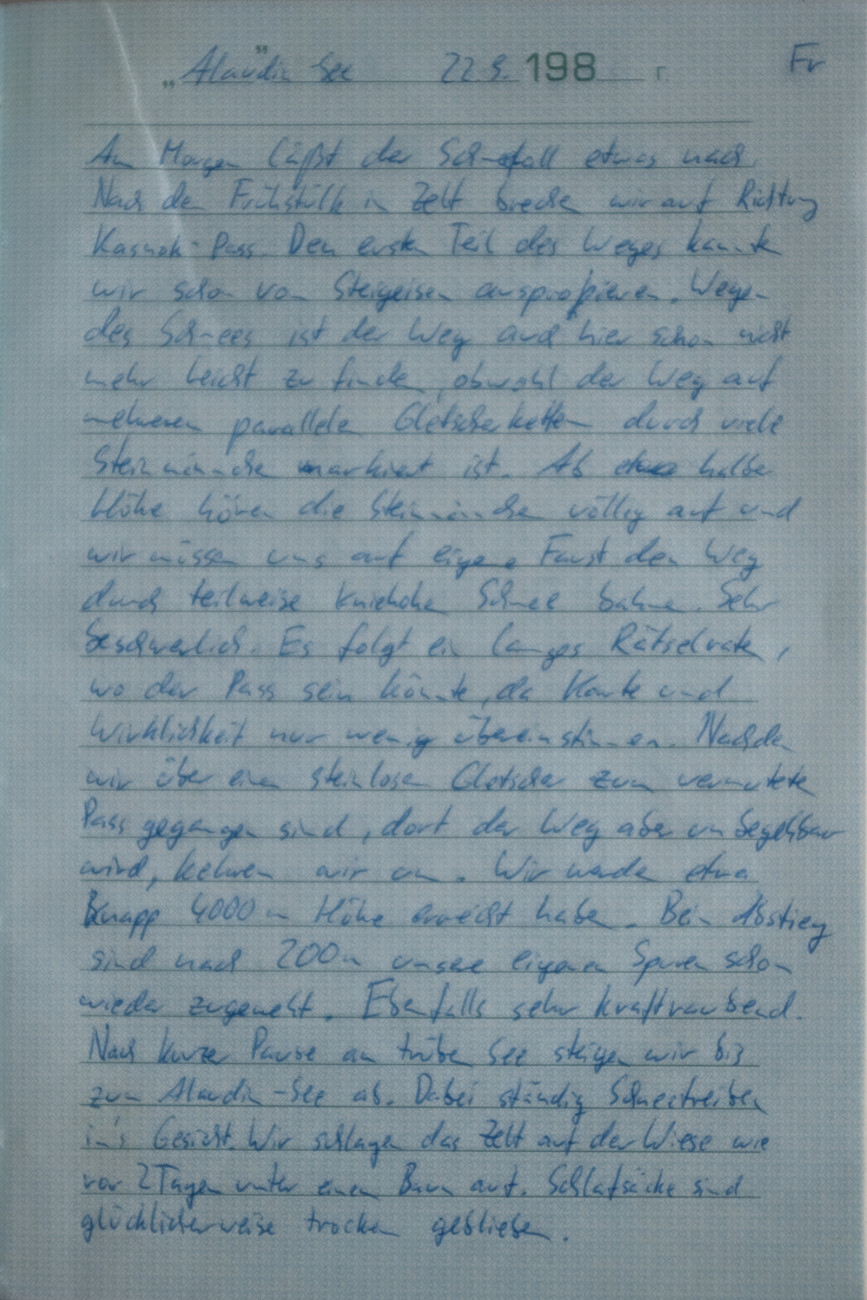 „Alaudin See" 22.9. 198 г. Fr
Am Morgen läßt der Schneefall etwas nach.
Nach dem Frühstück im Zelt brechen wir auf Richtung
Kasnok-Pass. Den ersten Teil des Weges konnten
wir schon von Steigeisen ausprobieren. Wegen
des Schnees ist der Weg auch hier schon nicht
mehr leicht zu finden, obwohl der Weg auf
mehreren parallelen Gletscherketten durch viele
Steinmännchen markiert ist. Ab etwa halber
Höhe hören die Steinmännchen völlig auf und
wir müssen uns auf eigene Faust den Weg
durch teilweise kniehohen Schnee bahnen. Sehr
beschwerlich. Es folgt ein langes Rätselraten,
wo der Pass sein könnte, da Karte und
Wirklichkeit nur wenig übereinstimmen. Nachdem
wir über einen steinlosen Gletscher zum vermuteten
Pass gegangen sind, dort der Weg aber unbegehbar
wird, kehren wir um. Wir werden etwa
knapp 4000 m Höhe erreicht haben. Beim Abstieg
sind nach 200m unsere eigenen Spuren schon
wieder zugeweht. Ebenfalls sehr kraftraubend.
Nach kurzer Pause am trüben See steigen wir bis
zum Alaudin-See ab. Dabei ständig Schneetreiben
in's Gesicht. Wir schlagen das Zelt auf der Wiese wie
vor 2 Tagen unter einem Baum auf. Schlafsäcke sind
glücklicherweise trocken geblieben.